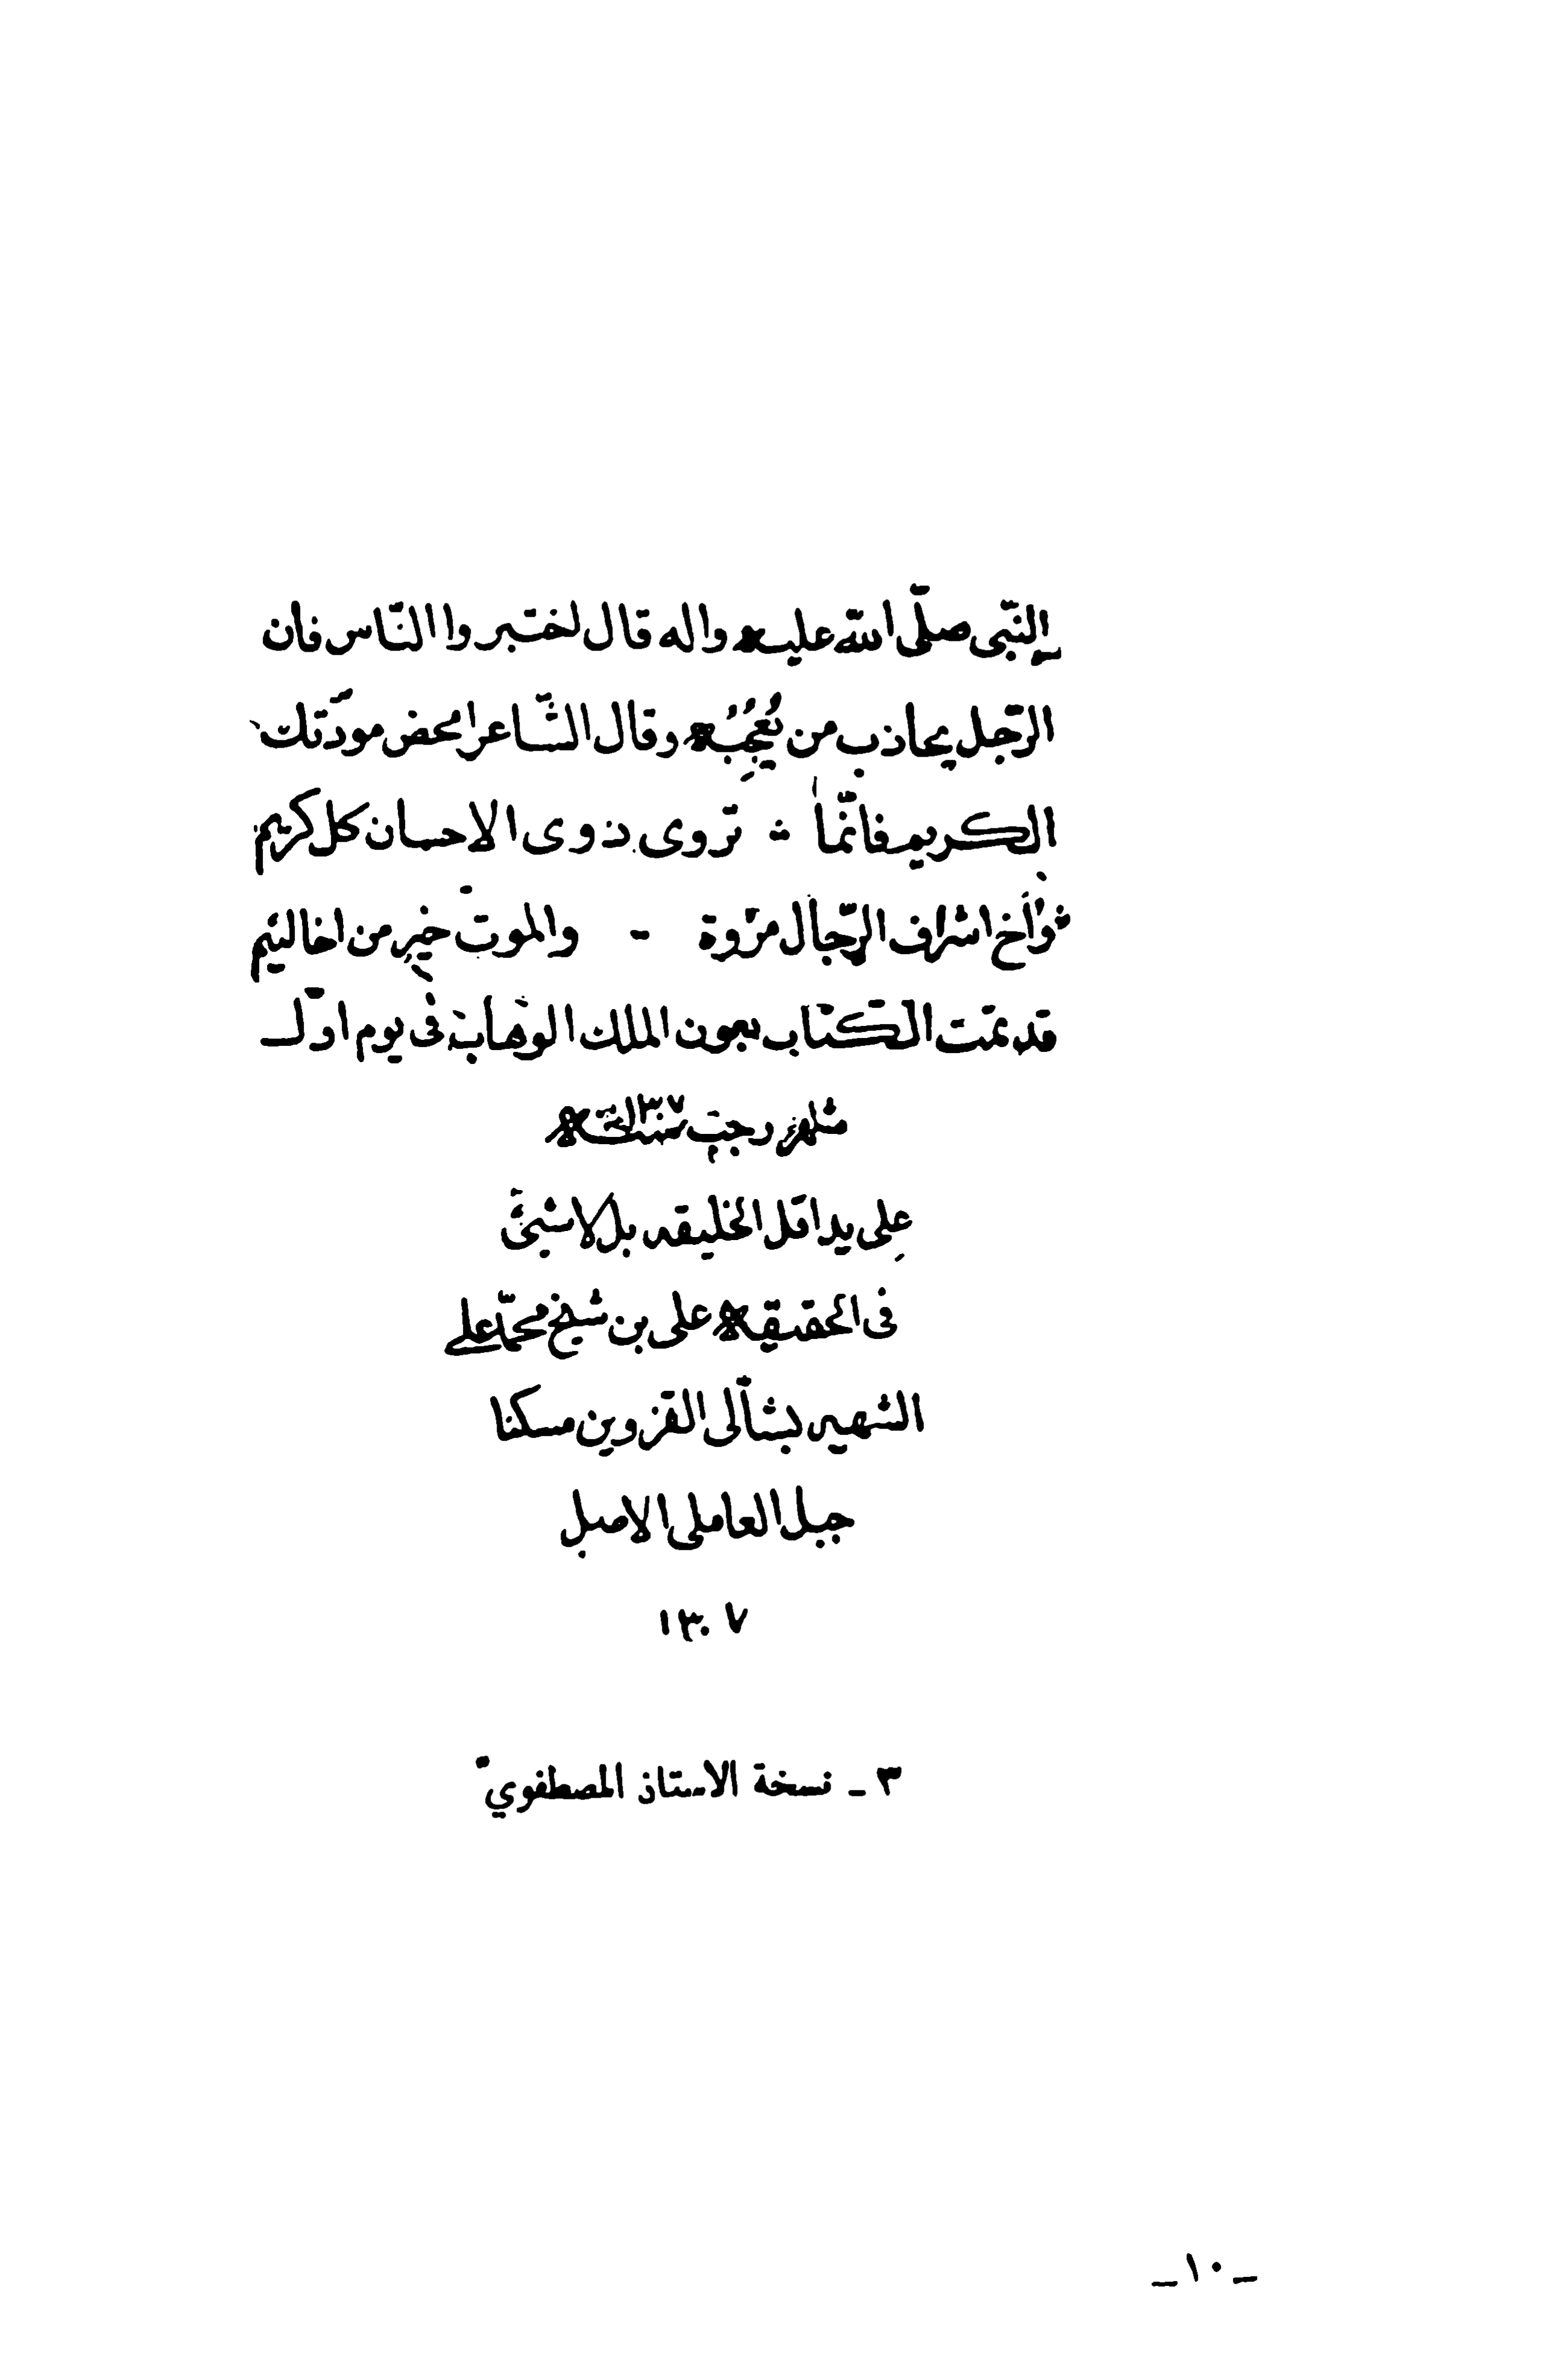 النبّى صلّى الله عليه واله قال لختبروا النّاس فان
الرّجل يحاذب من يُحِبُّه وقال الشّاعر امحض مودّتك
الكريم فانّما ∴ تروى ذوى الاحسان كل كريم
اخ اشراف الرّجال مروّة - والموت خير من اخا لئيم
قد تمّت الكتاب بعون الملك الوهّاب فى يوم اوّل
شهر رجب
على يد اقل الخليقه بل لا شئ
فى الحقيقه على بن شيخ محمّد على
الشهير بثالى القزوين مسكنا
جبل العاملى الاصل
١٣٠٧
٣ ـ نسخة الاستاذ المصطفوي
ـ ١٠ ـ